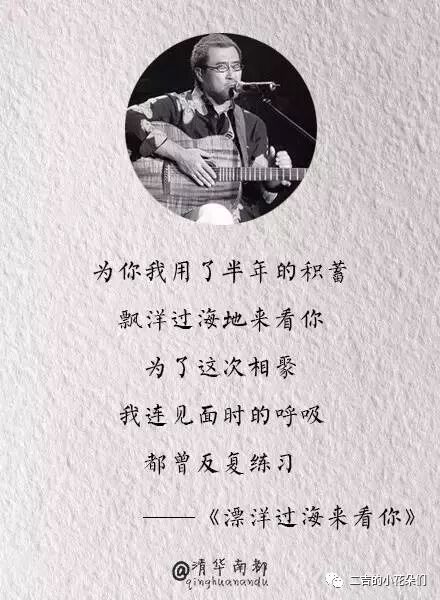 为你我用了半年的积蓄
飘洋过海地来看你
为了这次相聚
我连见面时的呼吸
都曾反复练习
——《漂洋过海来看你》
@清华南都
qinghuanandu
二吉的小花朵们